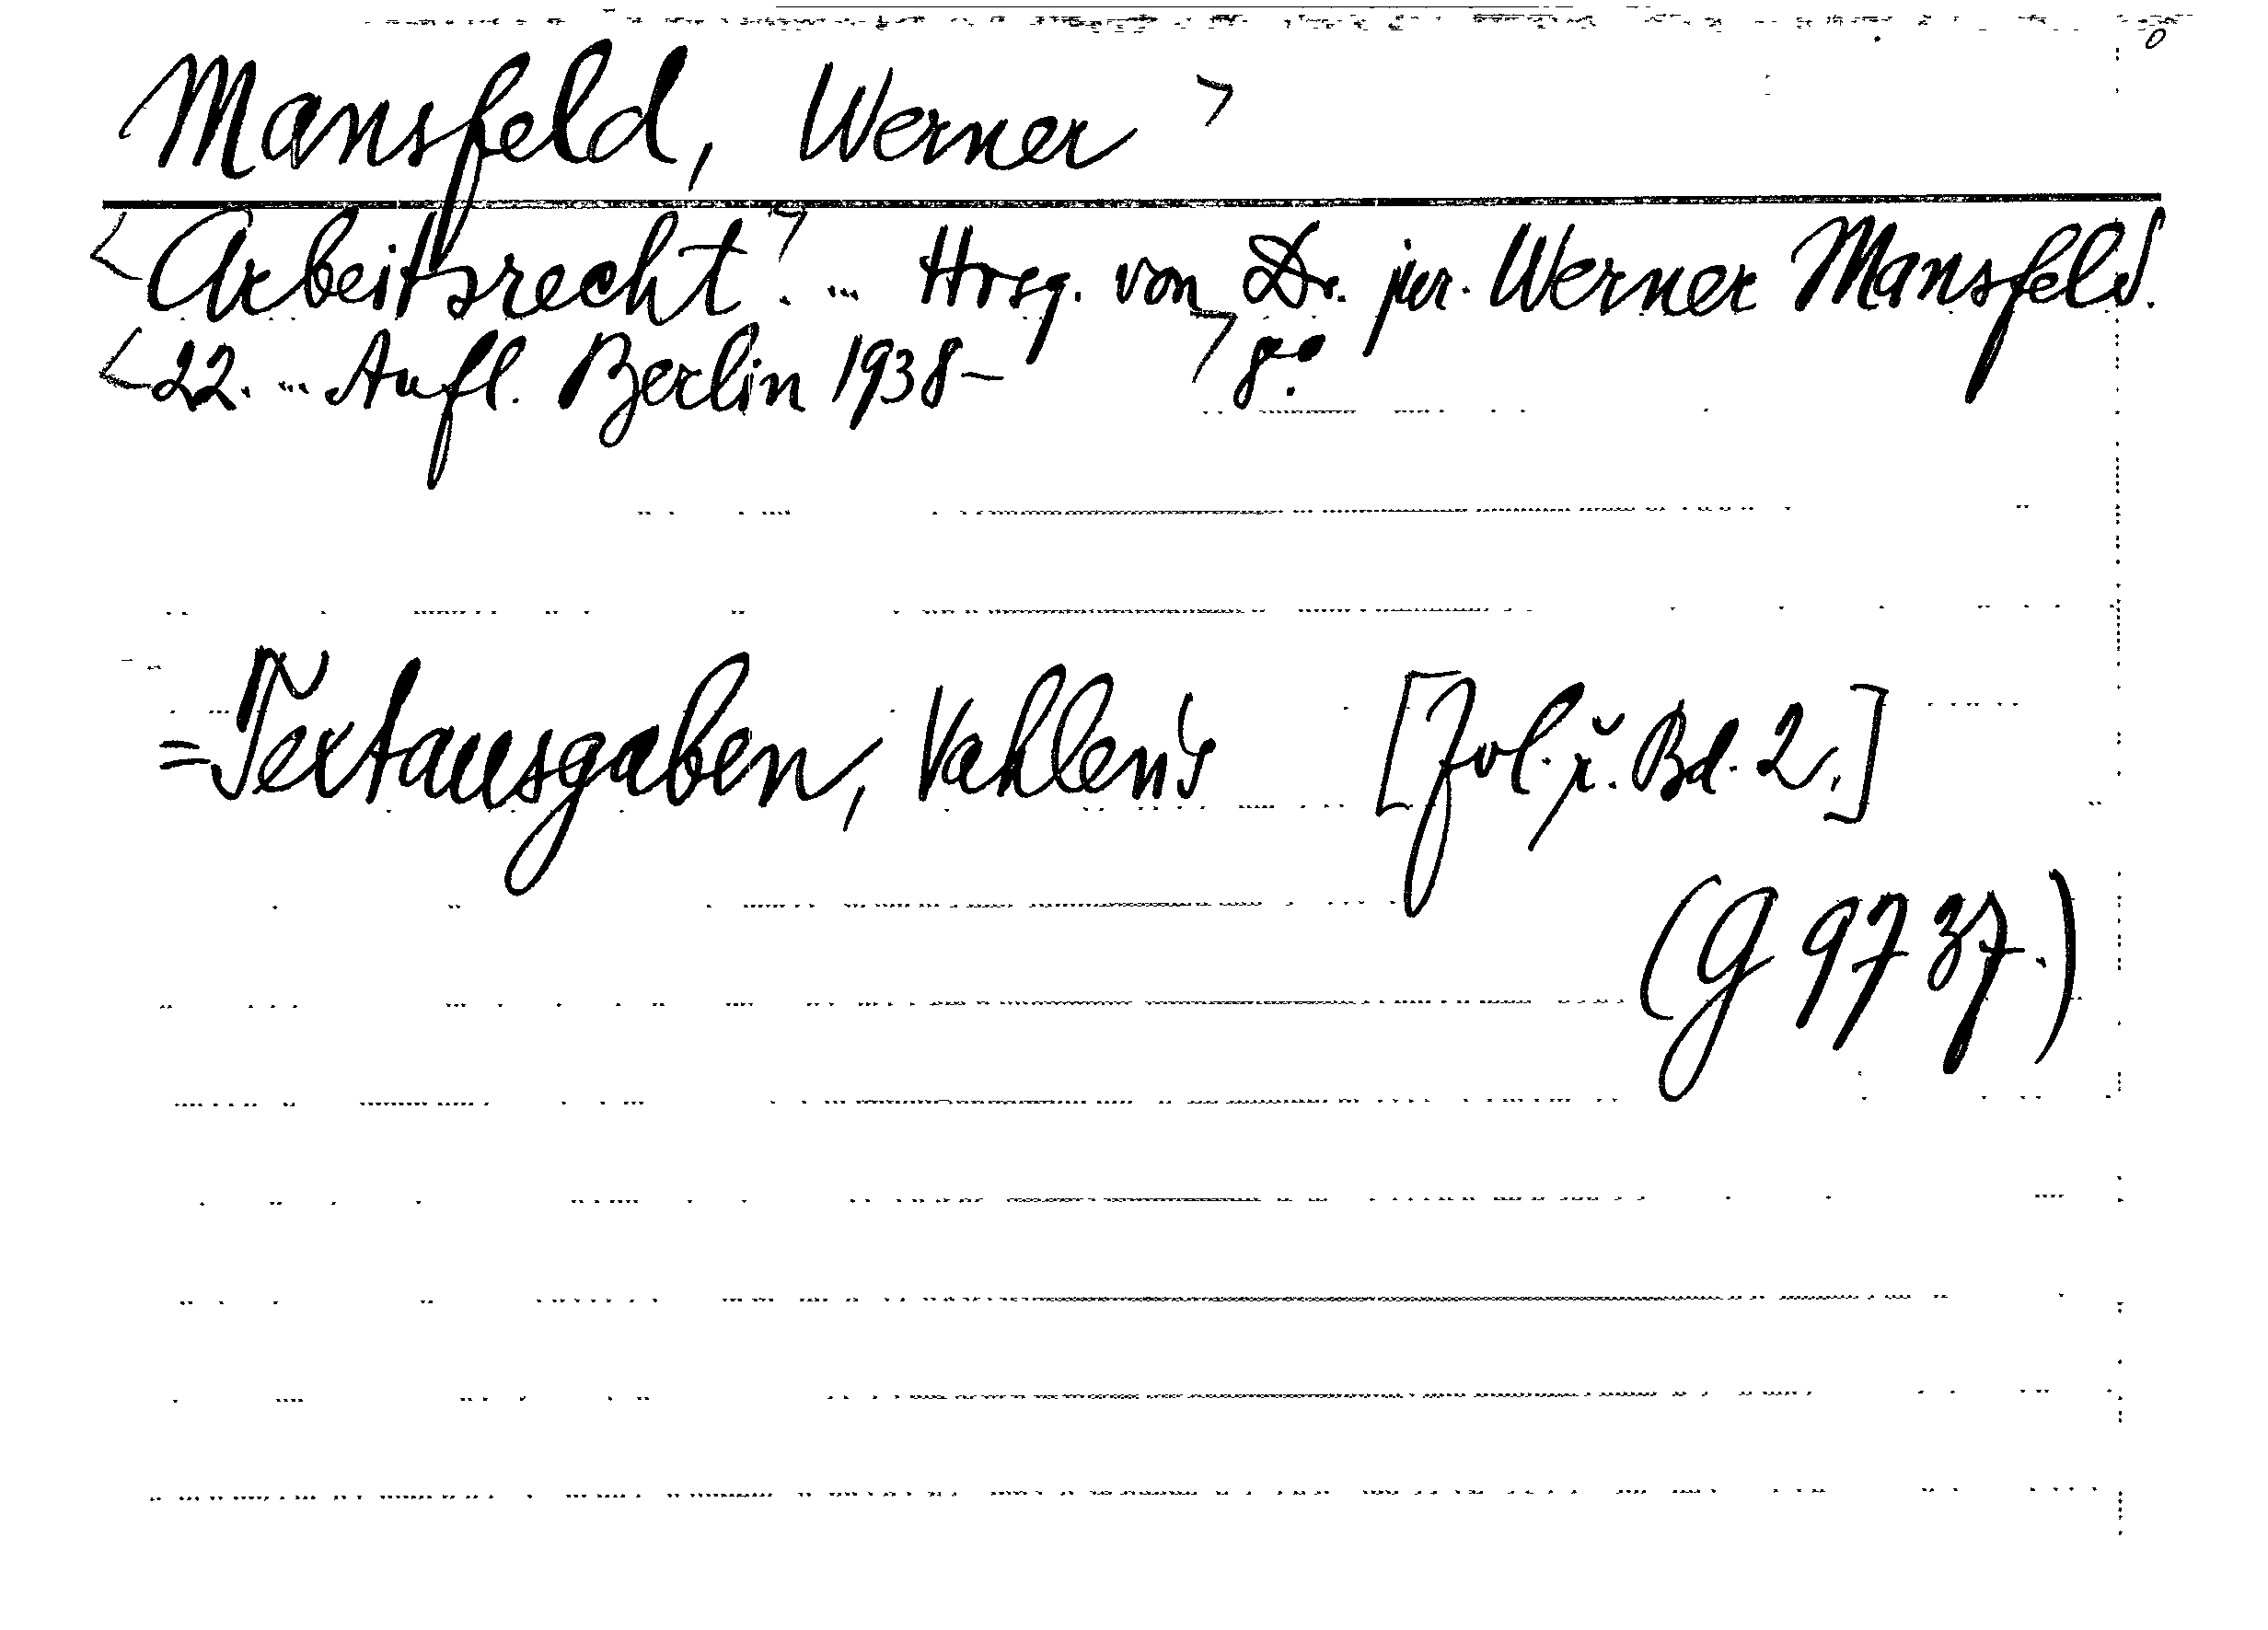 Mansfeld, Werner >
<Arbeitsrecht>. ... Hrsg. von Dr. jur. Werner Mansfeld.
<22. ... Aufl. Berlin 1938- > 8°.
=Textausgaben, Vahlen's [ Bd. 2.]
(G 9737.)